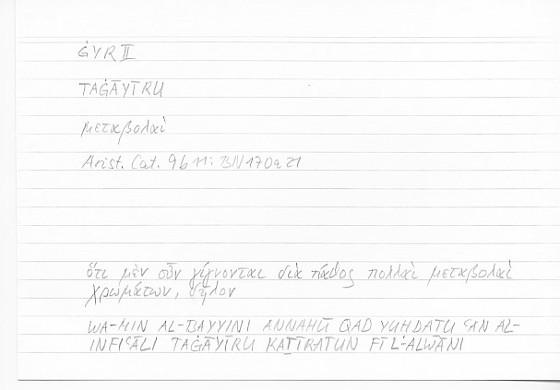 ĠYR II
TAĠĀYĪRU
μεταβολαὶ
Arist. Cat. 9b11; BN170a21
ὅτι μὲν οὖν γίγνονται διὰ πάθος πολλαὶ μεταβολαὶ
χρωμάτων, δῆλον
WA-MIN AL-BAYYINI ANNAHŪ QAD YUḤDAṮU ʿAN AL-
INFIʿĀLI TAĠĀYĪRU KAṮĪRATUN FĪ L-ALWĀNI